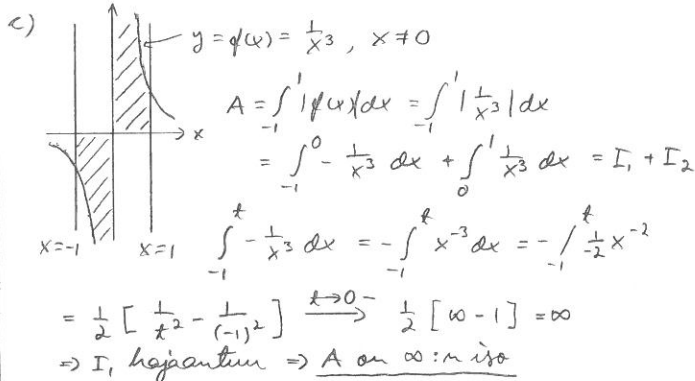 c)
y = f(x) = 1/x³ , x ≠ 0
A = ∫₋₁¹ |f(x)| dx = ∫₋₁¹ |1/x³| dx
= ∫₋₁⁰ - 1/x³ dx + ∫₀¹ 1/x³ dx = I₁ + I₂
x
x=-1 x=1
∫₋₁ᵗ - 1/x³ dx = - ∫₋₁ᵗ x⁻³ dx = - /₋₁ᵗ 1/-2 x⁻²
= 1/2 [ 1/t² - 1/(-1)² ] t→0- → 1/2 [∞ - 1] = ∞
⇒ I₁ hajaantuu ⇒ A on ∞:n iso